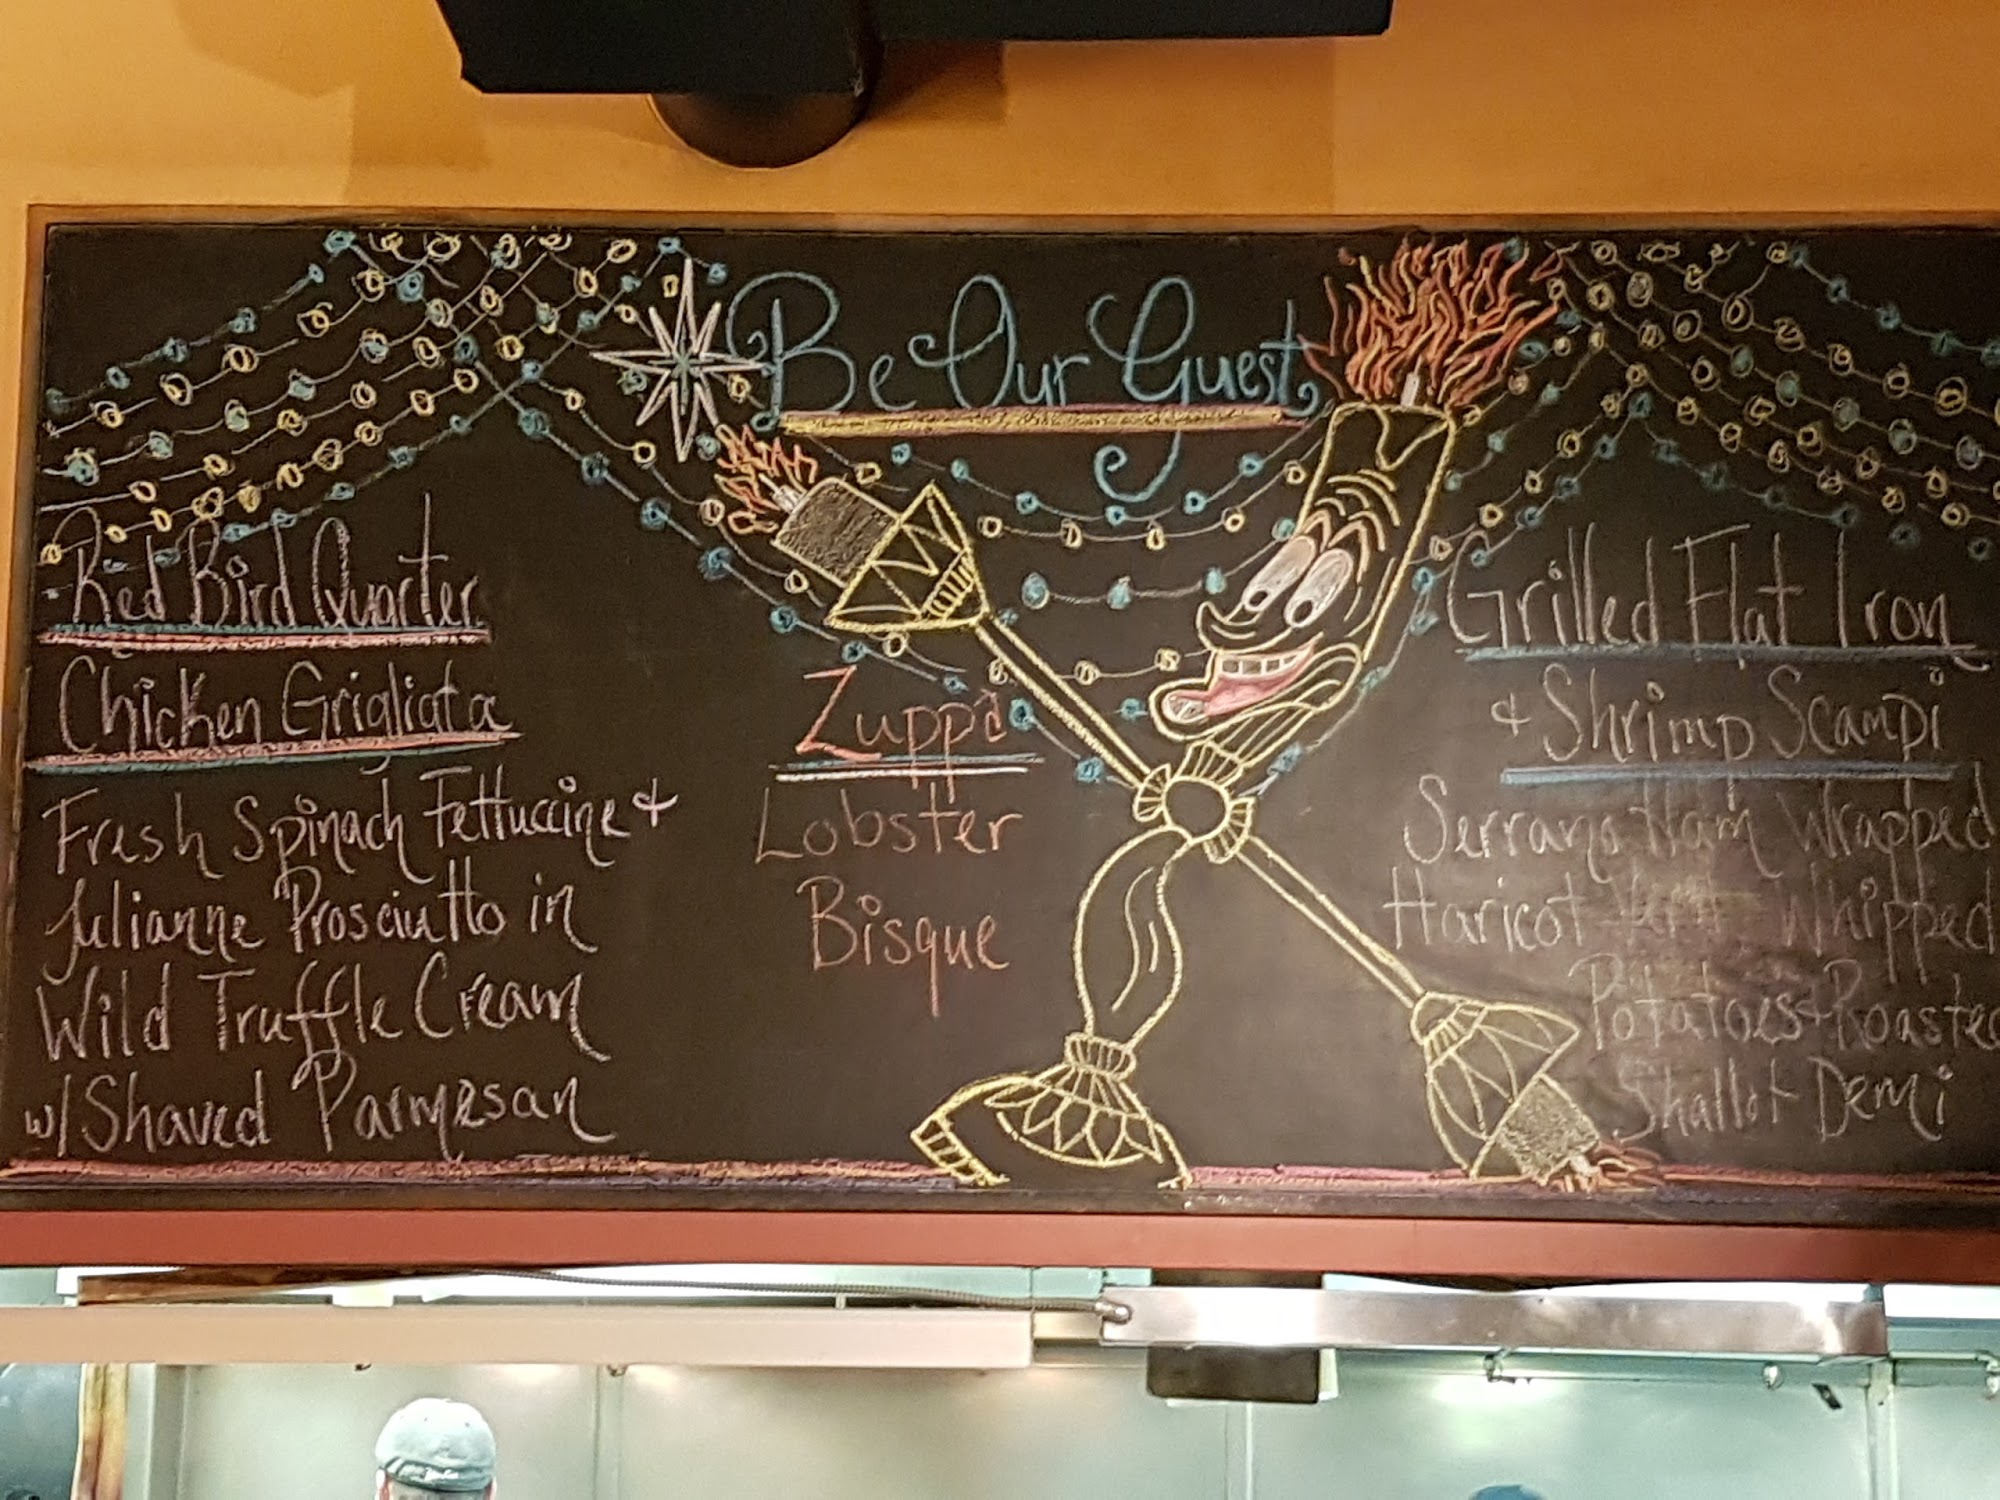 Be Our Guest
Red Bird Quarter
Chicken Grigliata
Fresh Spinach Fettuccine &
Julianne Prosciutto in
Wild Truffle Cream
w/ Shaved Parmesan
Zuppa
Lobster
Bisque
Grilled Flat Iron
& Shrimp Scampi
Serrano Ham Wrapped
Haricot Vert Whipped
Potatoes & Roasted
Shallot Demi